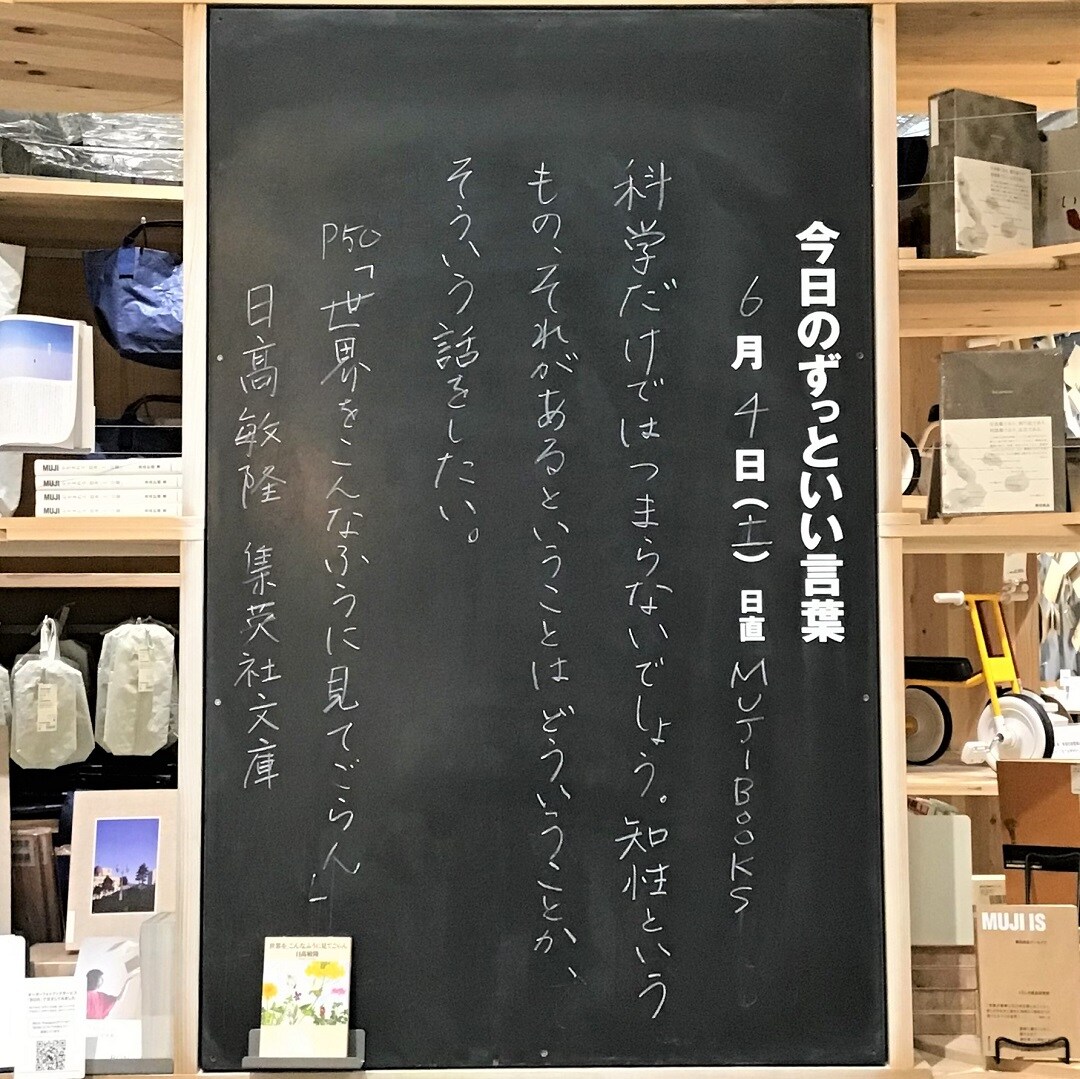 今日のずっといい言葉
6月4日(土) 日直 MUJI BOOKS
科学だけではつまらないでしょう。知性という
もの、それがあるということはどういうことか、
そういう話をしたい。
P50「世界をこんなふうに見てごらん」
日高敏隆 集英社文庫
世界を、こんなふうに見てごらん
日高敏隆
MUJI
MUJI
MUJI
MUJI
MUJI IS